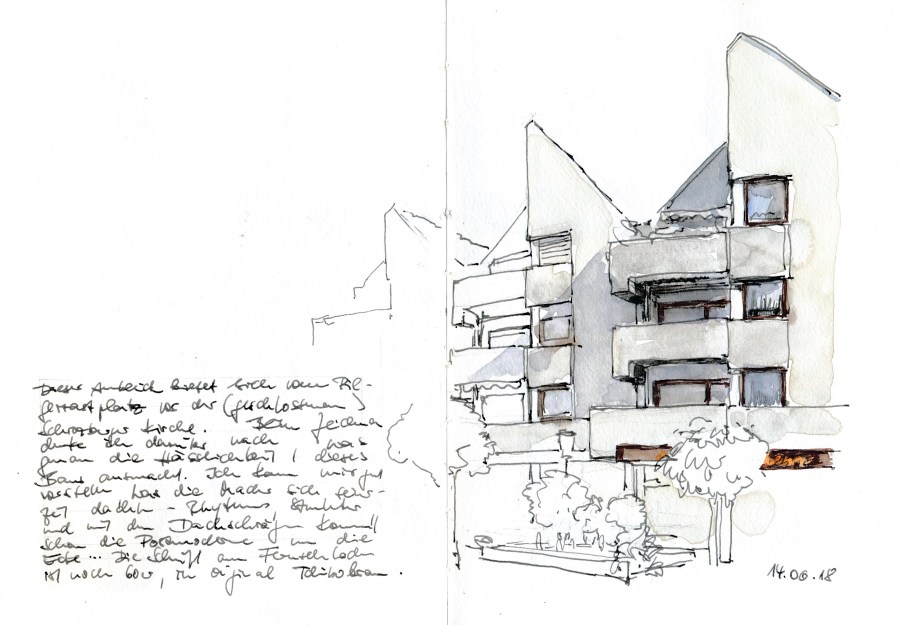 Dieser Anblick bietet sich vom
platz vor der (geschlossenen)
Kirche. Beim Zeichnen
denke ich darüber nach was
man die Hässlichkeit dieses
Baus ausmacht. Ich kann mir gut
vorstellen was die Macher sich
dachten - Rhythmus, Struktur
und mit den Dachschrägen kommt
schon die Postmoderne um die
Ecke... Die Schrift am Fensterladen
ist noch 60er, im original Tschibobraun.
14.06.18